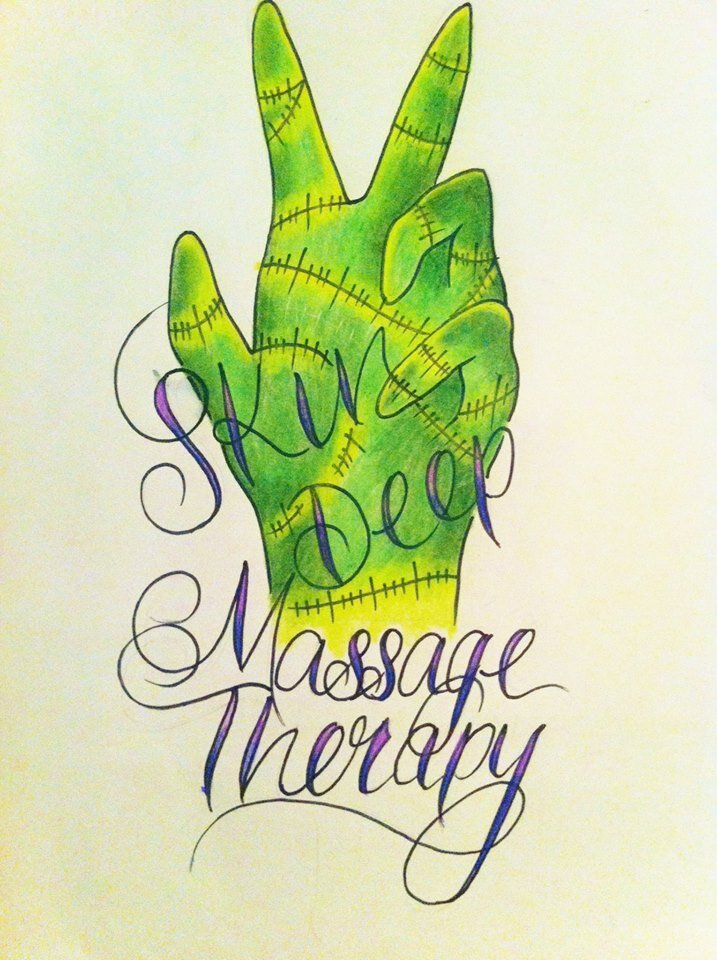 Skin
Deep
Massage
Therapy